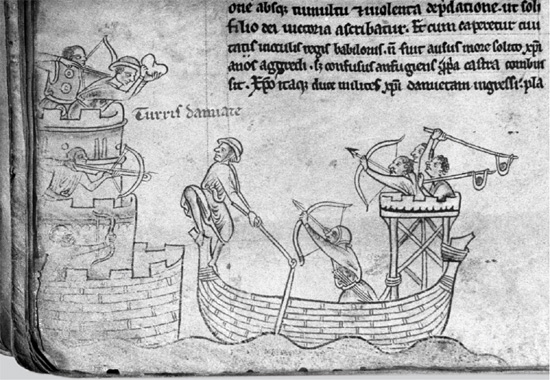 one absq; tumultu ⁊ violenta dep̱datione. ut soli
filio dei victoria ascribatur. Et cum caperetur ciui
tatis in oculis regis babilonis. ñ fuit ausus more solito xp̄i
anos aggredi. s; confusus aufugiens castra combus
sit. Xp̄o itaq; duce milites xp̄i damietam ingressi. pla
Turris damiate